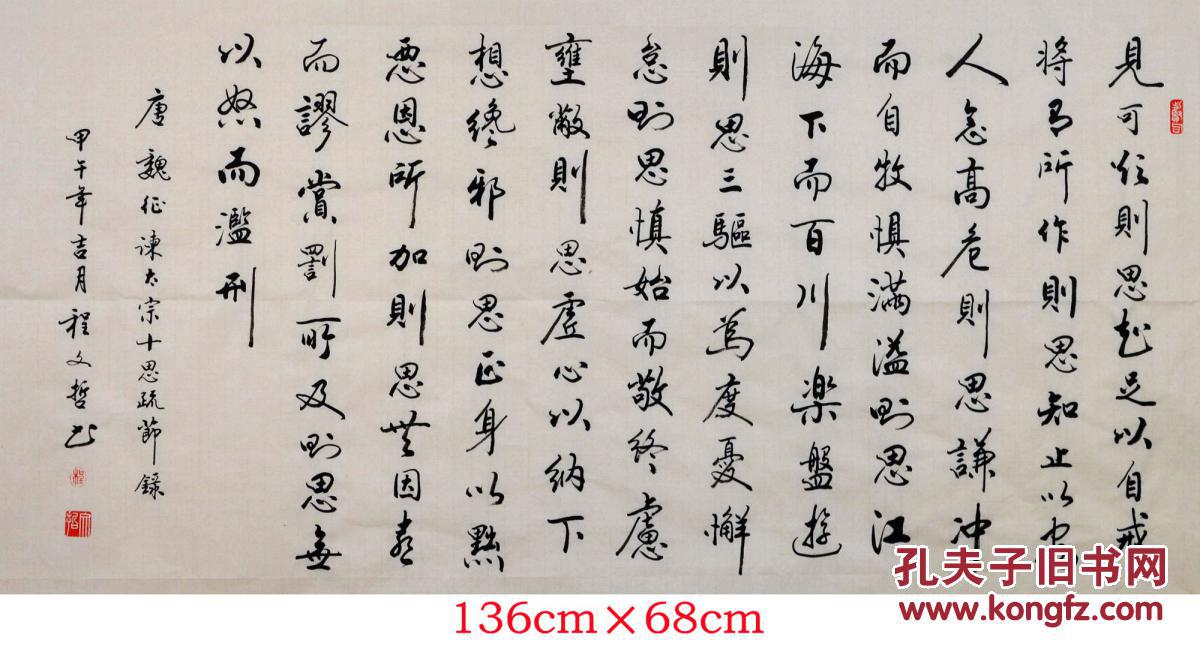 見可欲則思知足以自戒
将有所作則思知止以安
人念高危則思謙冲
而自牧惧滿溢則思江
海下而百川楽盤遊
則思三驅以為度憂懈
怠則思慎始而敬終慮
壅蔽則思虚心以納下
想纔邪則思正身以黜
悪恩所加則思無因喜
而謬賞罰所及則思無
以怒而濫刑
唐魏征諫太宗十思疏節録
甲午年吉月程文哲书
程
文哲
孔夫子旧书网
www.kongfz.com
136cm×68cm